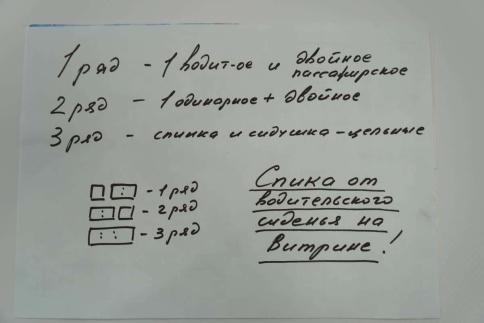 1 ряд - 1 водит-ое и двойное пассажирское
2 ряд - 1 одинарное + двойное
3 ряд - спинка и сидушка - цельные
- 1 ряд
- 2 ряд
- 3 ряд
Спика от
водительского
сиденья на
Витрине!